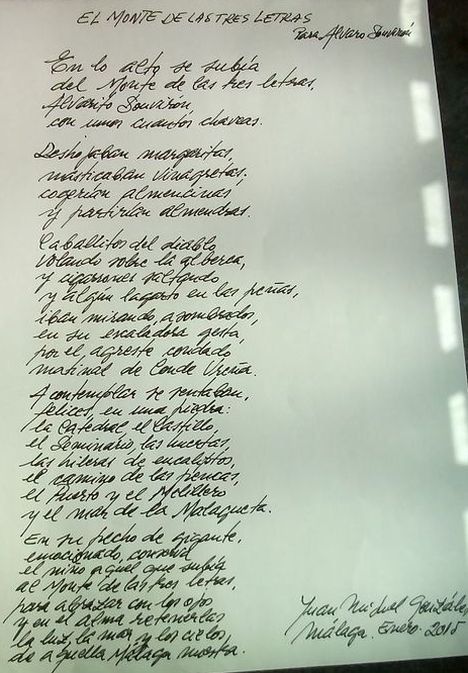 EL MONTE DE LAS TRES LETRAS
Para Alvaro Souvirón
En lo alto se subía
del Monte de las tres letras,
Alvarito Souvirón,
con unos cuantos chaveas.
Deshojaban margaritas,
masticaban vinagretas,
cogerían almencinas
y partirían almendras.
Caballitos del diablo
volando sobre la alberca,
y cigarrones saltando
y algún lagarto en las peñas,
iban mirando, asombrados,
en su escaladora gesta,
por el, agreste condado
matinal de Conde Ureña.
A contemplar se sentaban,
felices, en una piedra:
la Catedral, el Castillo,
el Seminario, las huertas,
las hileras de eucaliptos,
el camino de las pencas,
el Puerto y el Melillero
y el mar de la Malagueta.
En su pecho de gigante,
emocionado, conserva
el niño aquel que subía
al Monte de las tres letras,
para abrazar con los ojos
y en el alma retenerlas
la luz, la mar y los cielos,
de aquella Málaga nuestra.
Juan Miguel González
Málaga. Enero. 2015